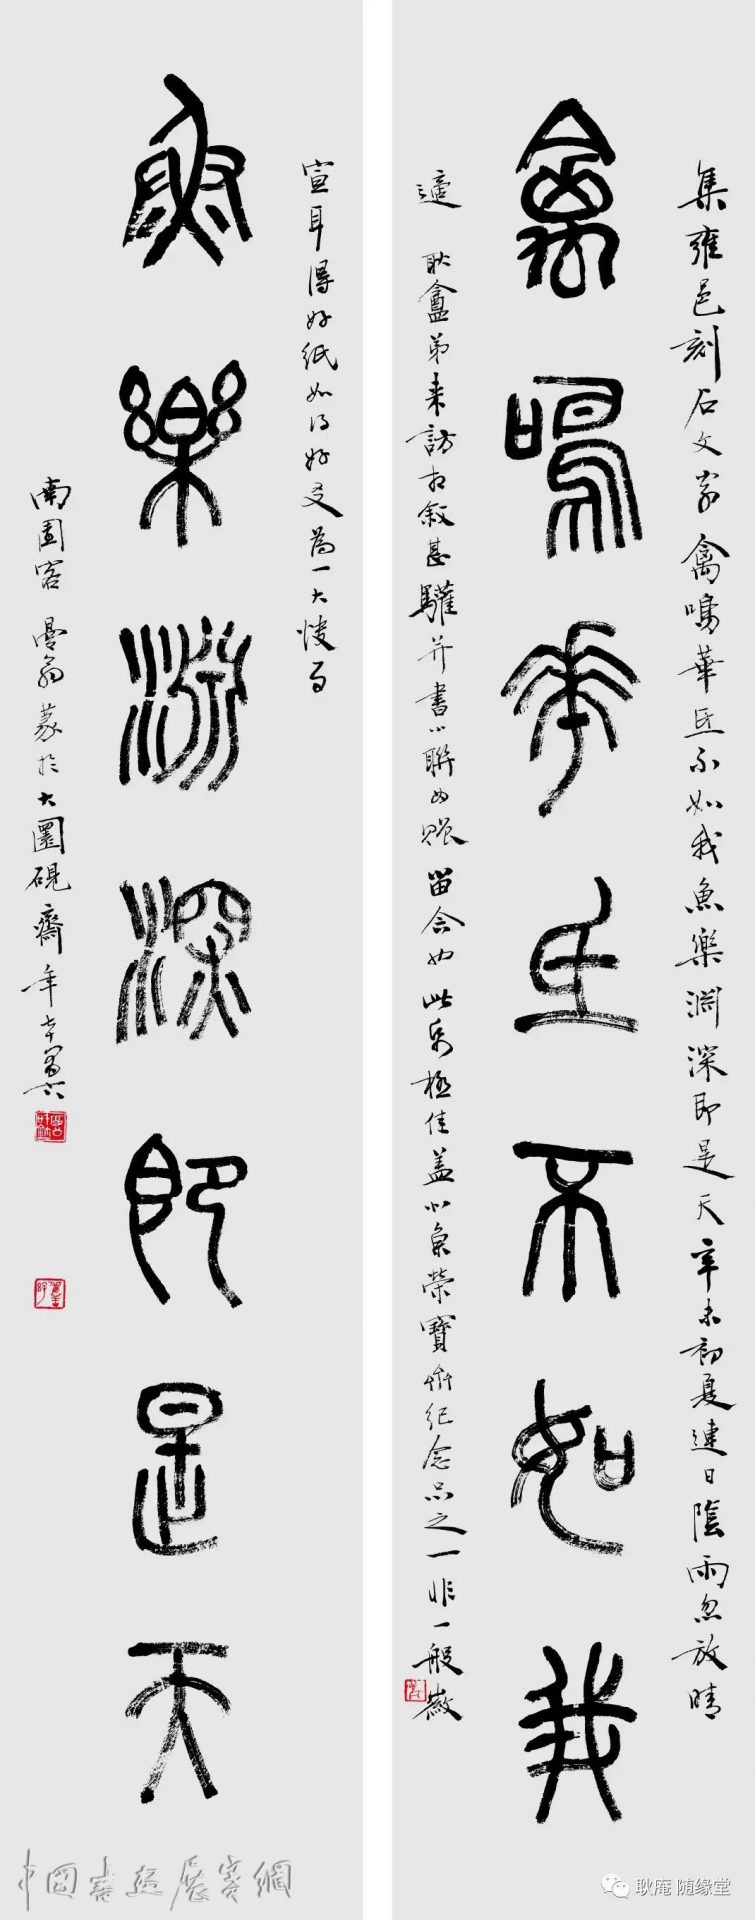 集雍邑刻石文字 禽鳴華氐不如我魚樂淵深即是天 辛未初夏連日陰雨忽放晴
禽鳴華氐不如我
適 耿盦弟来訪相敘甚驩并書小聯為贈 留念也此帋極佳蓋北京榮寶齋紀念品之一非一般徽
宣耳得好紙如得好友為一大快事
魚樂淵深即是天
南園客 曼翁篆於大圜硯齋年七十
中國書畫展賽網
耿庵 随缘堂